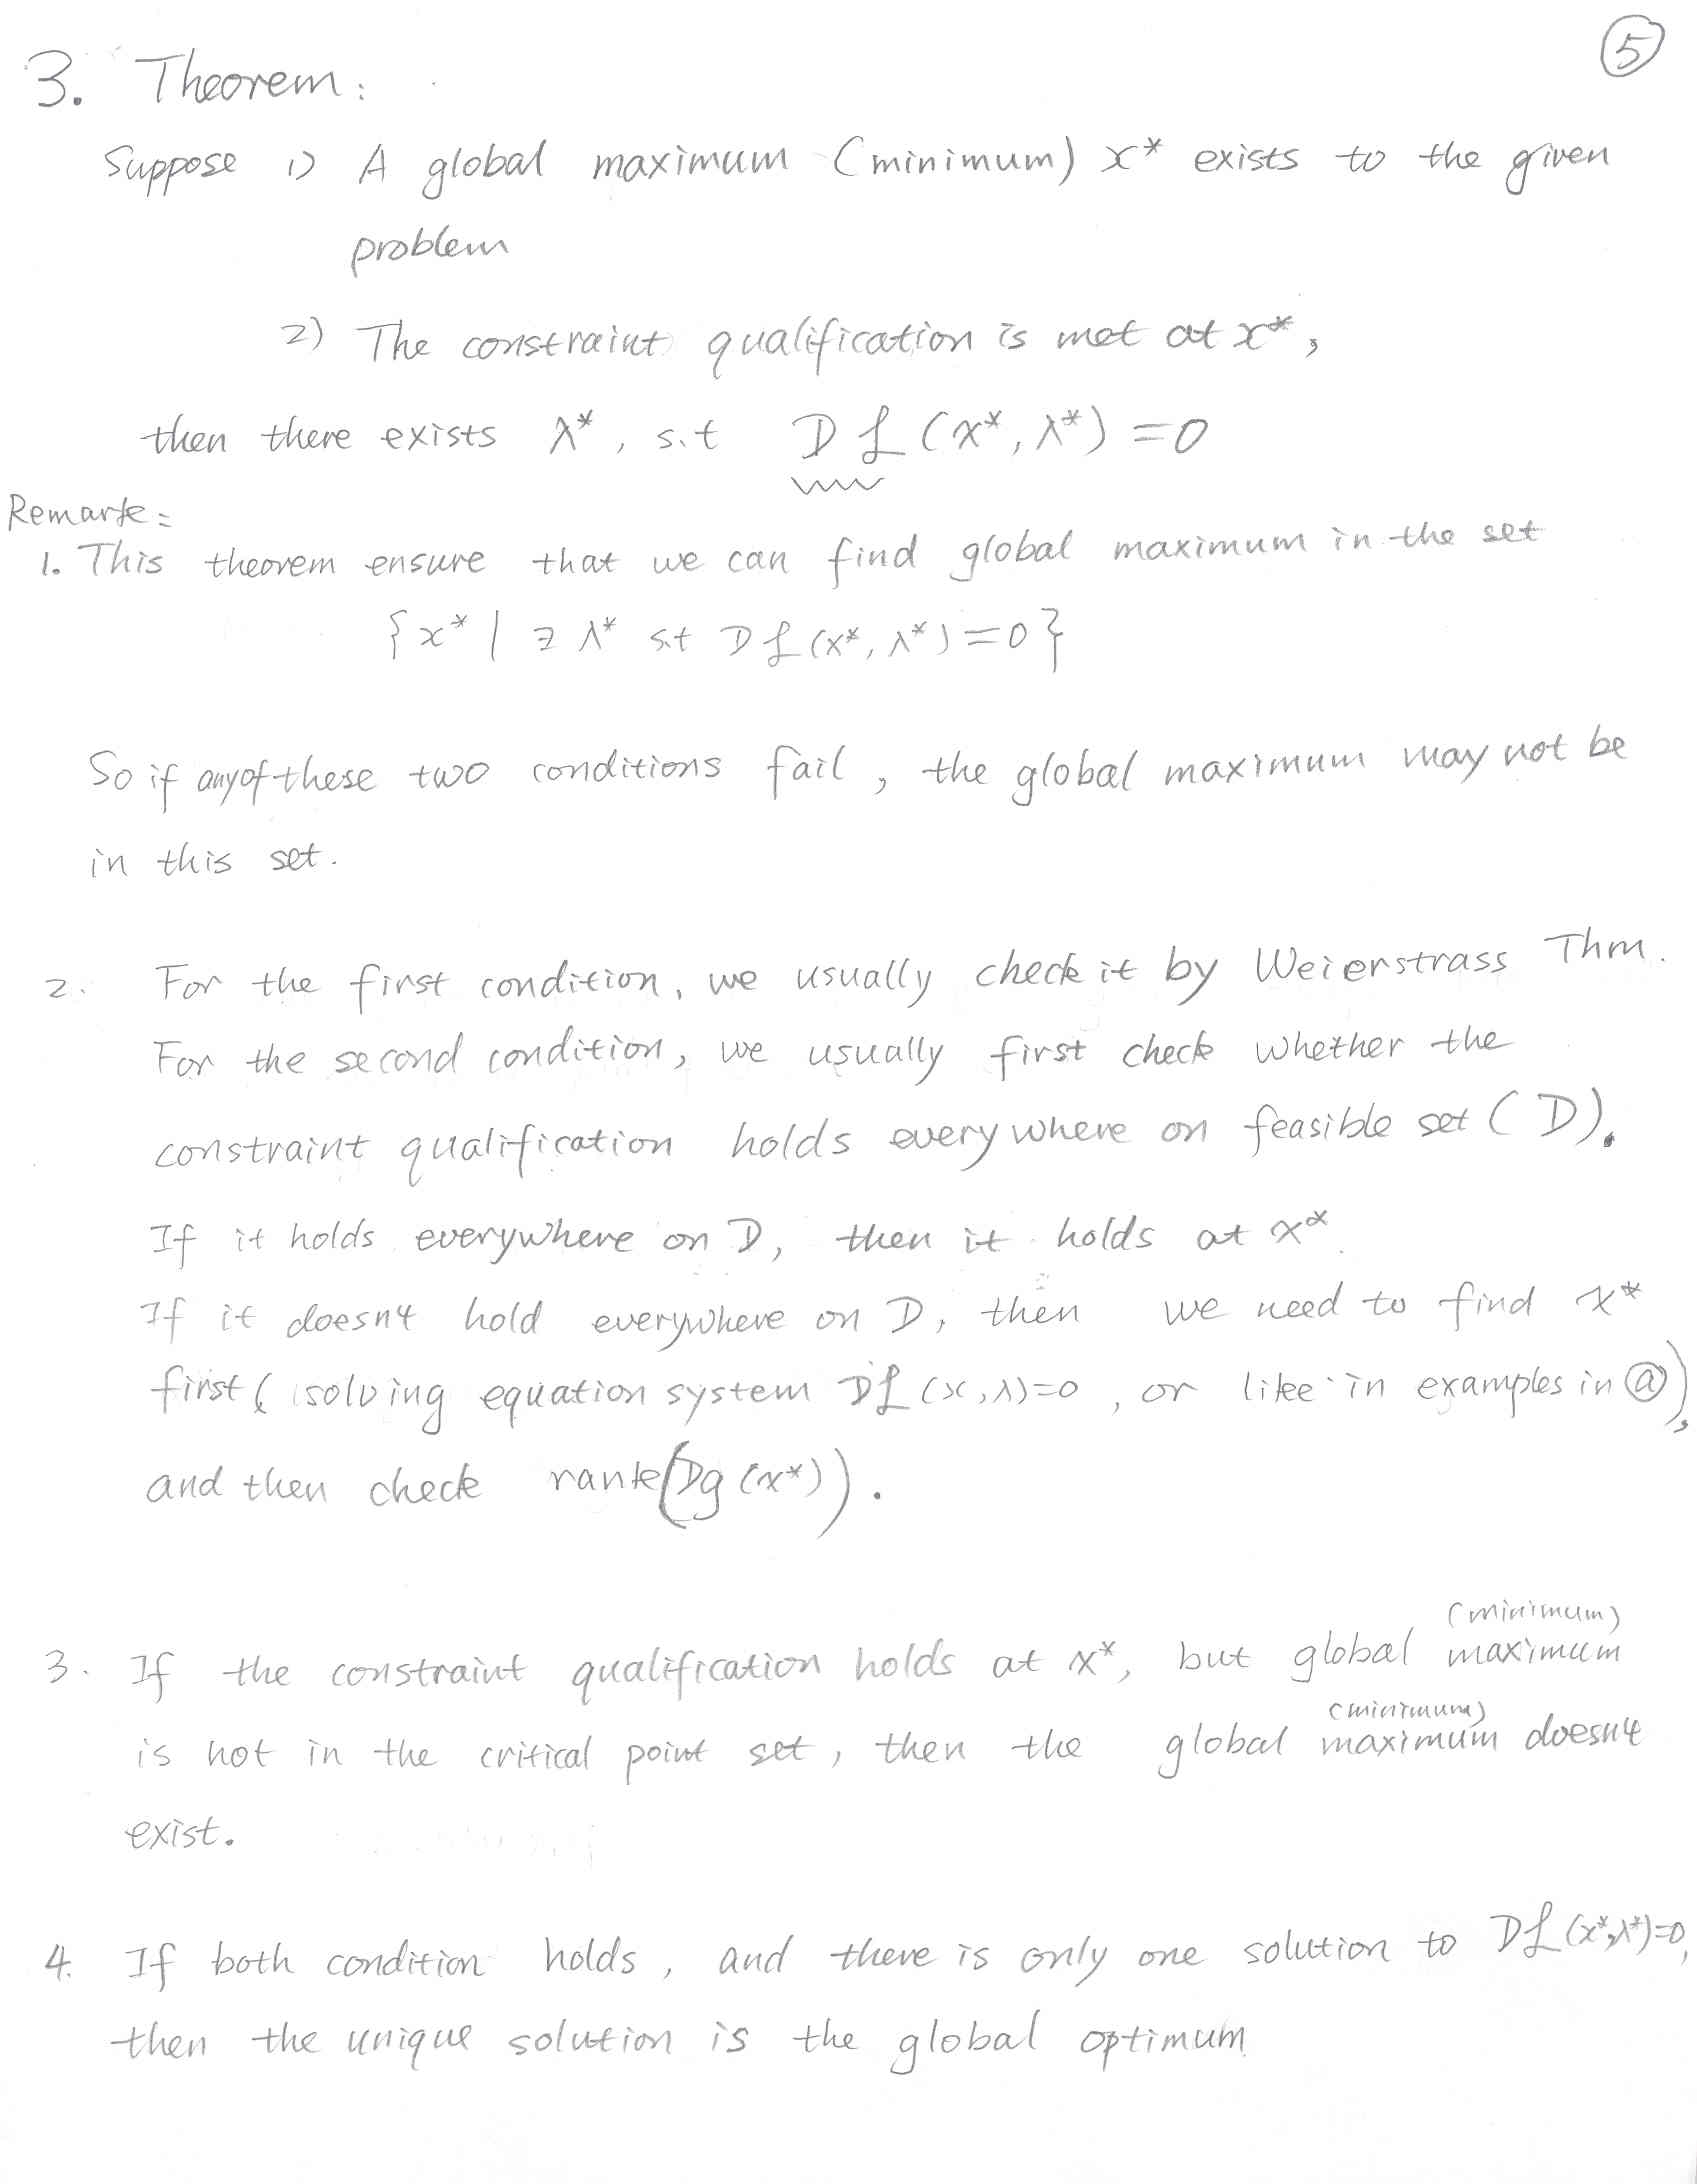 ⑤
3. Theorem:
Suppose 1) A global maximum (minimum) x* exists to the given
problem
2) The constraint qualification is met at x*,
then there exists λ*, s.t Dℒ(x*, λ*) = 0
Remark:
1. This theorem ensure that we can find global maximum in the set
{x* | ∃ λ* s.t Dℒ(x*, λ*) = 0}
So if any of these two conditions fail, the global maximum may not be
in this set.
2. For the first condition, we usually check it by Weierstrass Thm.
For the second condition, we usually first check whether the
constraint qualification holds everywhere on feasible set (D).
If it holds everywhere on D, then it holds at x*.
If it doesn't hold everywhere on D, then we need to find x*
first (solving equation system Dℒ(x, λ)=0, or like in examples in ⓐ),
and then check rank(Dg(x*)).
(minimum)
3. If the constraint qualification holds at x*, but global maximum
(minimum)
is not in the critical point set, then the global maximum doesn't
exist.
4. If both condition holds, and there is only one solution to Dℒ(x*, λ*)=0,
then the unique solution is the global optimum